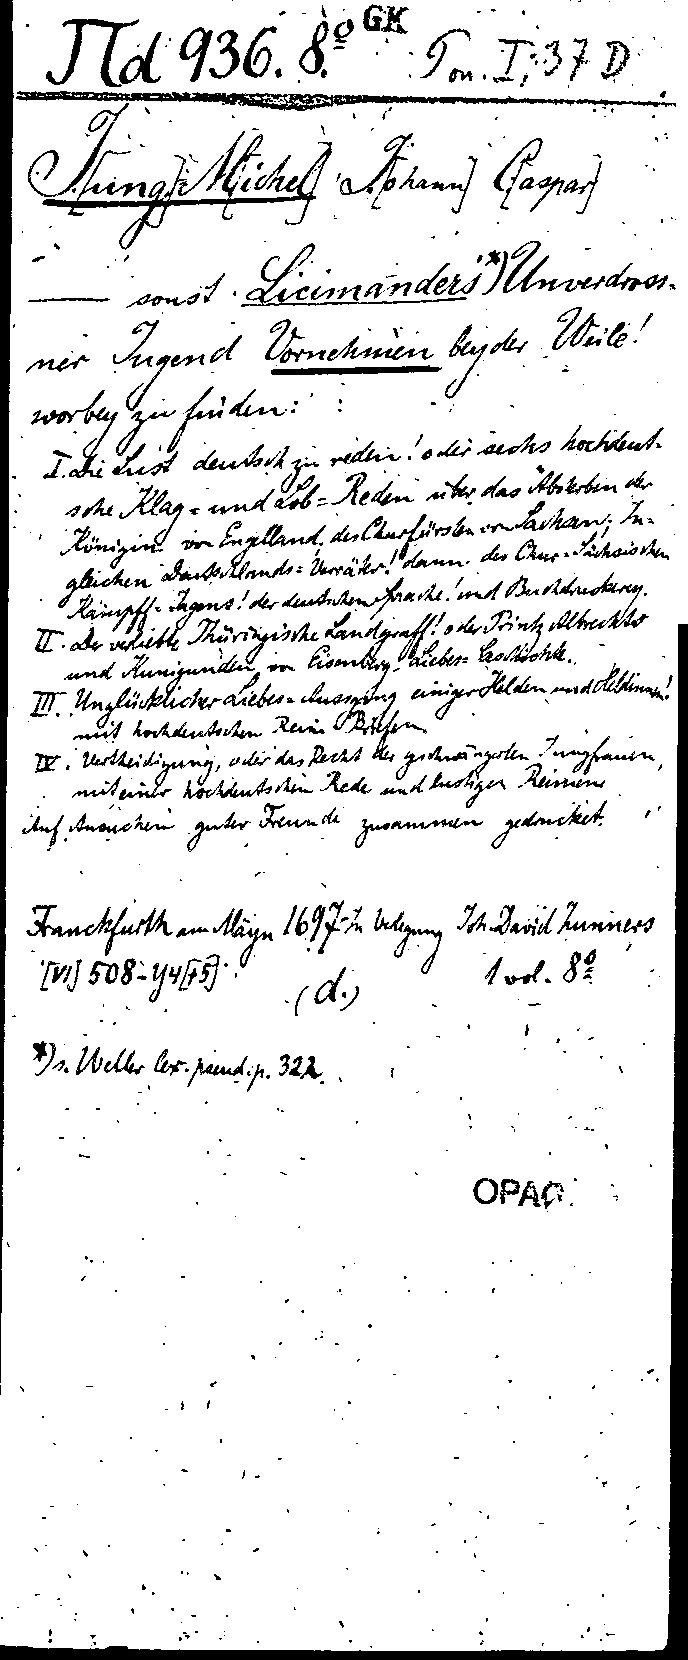 Πd 936. 8.º GK Ton. I, 37 D
J[ung]-M[ichel] J[ohann] C[aspar]
—— sonst Licimanders *) Unverdross-
ner Jugend Vornehmen bey der Weile!
worbey zu finden:
I. Die Lust deutsch zu reden! oder sechs hochdeut-
sche Klag- und Lob-Reden über das Absterben der
Königin von Engelland, des Churfürsten von Sachsen; In-
gleichen Deutschlands-Verräter! dann des Chur-Sächsischen
Kampff-Jagens! der deutschen Sprache! und Buchdruckerey.
II. Der verliebte Thüringische Landgraff! oder Printz Albrechts
und Kunigunden von Eisenberg Liebes-Geschichte.
III. Unglücklicher Liebes-Aussgang einiger Helden und Heldinnen!
mit hochdeutschen Reim Briefen
IV. Vertheidigung, oder das Recht der geschwängerten Jungfrauen,
mit einer hochdeutschen Rede und lustigen Reimen
Auf Ansuchen guter Freunde zusammen gedrucket.
Franckfurth am Mäyn 1697 In Verlegung Joh. David Zunners
[VI] 508 - Y4[+5] 1 vol. 8º
(d.)
*) s. Weller lex. pseud. p. 322.
OPAC